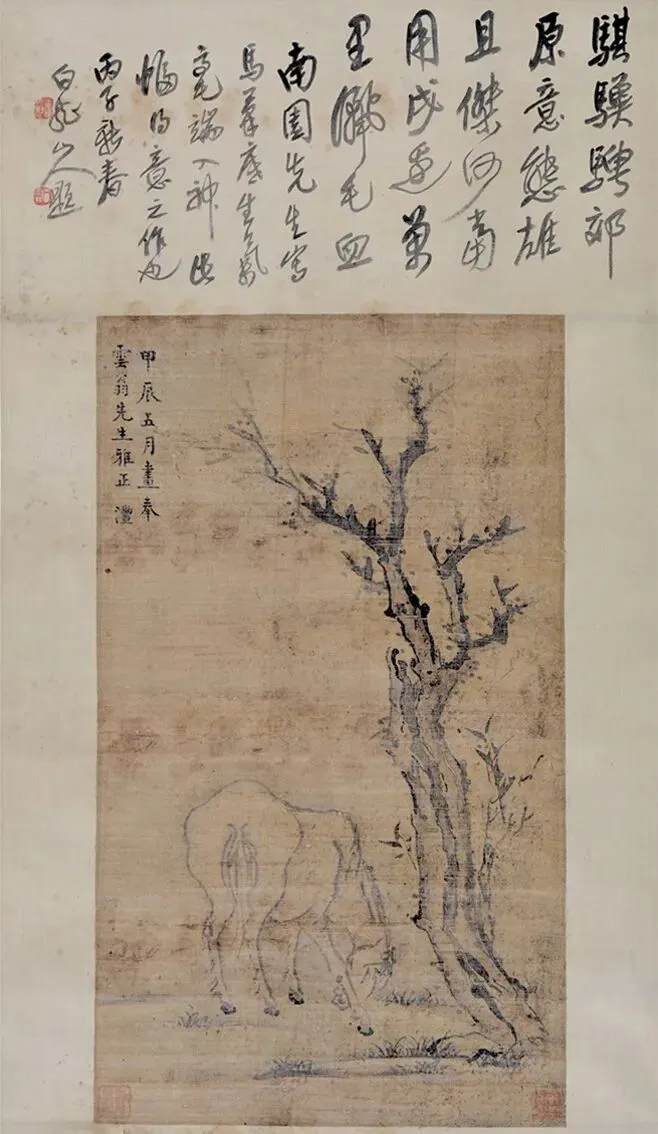 騏驥騁郊
原意態雄
且傑何當
用戍邊萬
里灑毛血
南園先生寫
馬筆底生氣
毫端入神此
幅得意之作也
丙子新春
白龍山人題
甲辰五月畫奉
雲翁先生雅正 灃